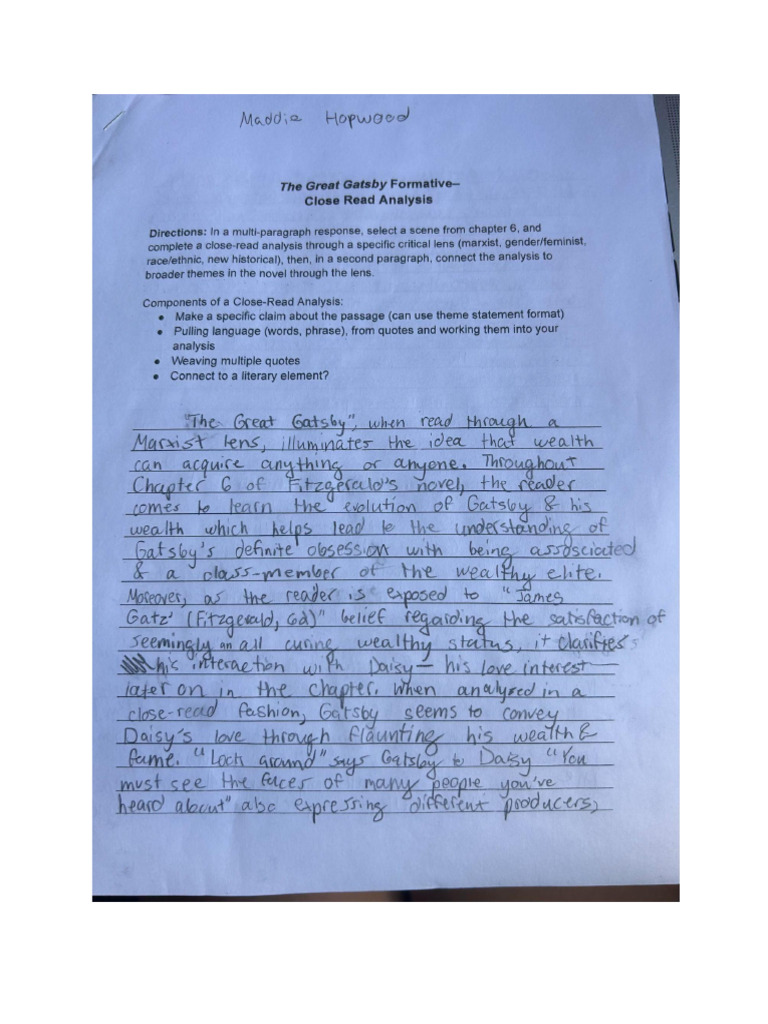 Maddie Hopwood
The Great Gatsby Formative–
Close Read Analysis
Directions: In a multi-paragraph response, select a scene from chapter 6, and
complete a close-read analysis through a specific critical lens (marxist, gender/feminist,
race/ethnic, new historical), then, in a second paragraph, connect the analysis to
broader themes in the novel through the lens.
Components of a Close-Read Analysis:
• Make a specific claim about the passage (can use theme statement format)
• Pulling language (words, phrase), from quotes and working them into your
analysis
• Weaving multiple quotes
• Connect to a literary element?
"The Great Gatsby", when read through a
Marxist lens, illuminates the idea that wealth
can acquire anything or anyone. Throughout
Chapter 6 of Fitzgerald's novel, the reader
comes to learn the evolution of Gatsby & his
wealth which helps lead to the understanding of
Gatsby's definite obsession with being assosciated
& a class-member of the wealthy elite.
Moreover, as the reader is exposed to "James
Gatz" (Fitzgerald, 62)" belief regarding the satisfaction of
seemingly an all curing wealthy status, it clarifies
his interaction with Daisy — his love interest
later on in the chapter. When analyzed in a
close-read fashion, Gatsby seems to convey
Daisy's love through flaunting his wealth &
fame. "Look around" says Gatsby to Daisy "You
must see the faces of many people you've
heard about" also expressing different producers,